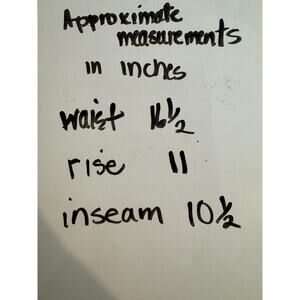 Approximate
measurements
in inches
waist 16½
rise 11
inseam 10½